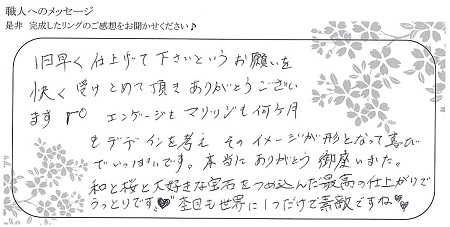 職人へのメッセージ
是非 完成したリングのご感想をお聞かせください♪
1日早く仕上げて下さいというお願いを
快く受けとめて頂きありがとうござい
ます エンゲージもマリッジも何ケ月
もデザインを考え そのイメージが形となって喜び
でいっぱいです。本当にありがとう御座いました。
和と桜と大好きな宝石をつめ込んだ最高の仕上がりで
うっとりです。 も世界に1つだけで素敵ですね